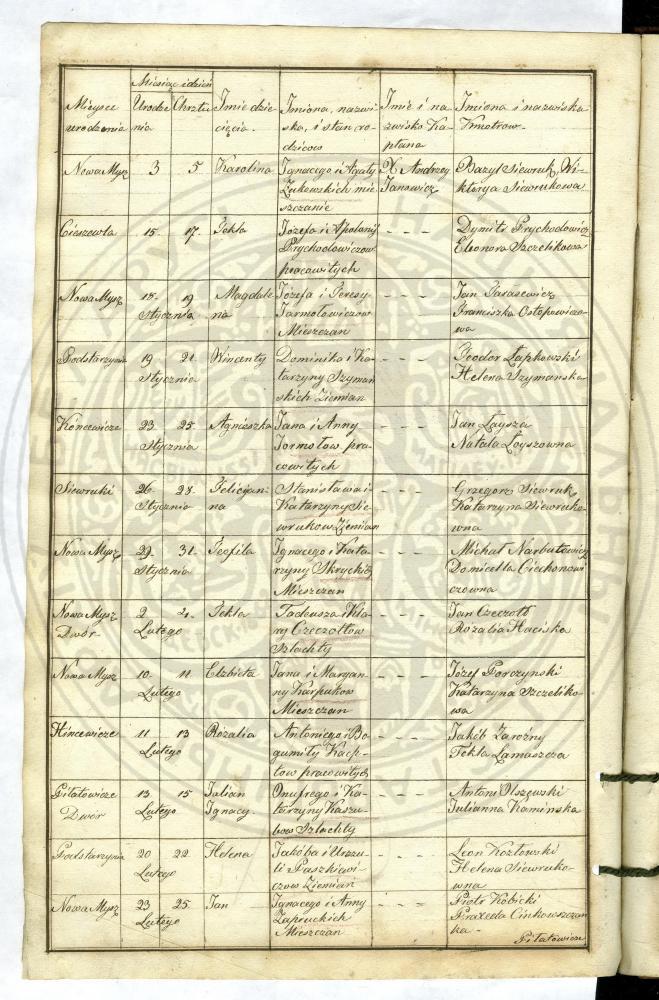 Miesiąc i dzień
Mieysce urodzenia | Urodzenia | Chrztu | Imie dziecięcia. | Imiona, nazwiska, i stan rodziców | Imie i nazwisko Kapłana | Imiona i nazwiska Kmotrow
Nowa Mysz | 3 | 5 | Karolina | Ignacego i Agaty Żukowskich mieszczanie | X Andrzey Janowicz | Bazyl Siewruk, Wiktorya Siewrukowa
Cieszewla | 15. | 17. | Tekla | Józefa i Apolonij Prychodowiczow pracowitych | - - - | Dymitr Prychodowicz Eleonora Szczelikowa
Nowa Mysz | 18. Stycznia | 19 | Magdalena | Józefa i Teresy Jarmołowiczow Mieszczan | - - - | Jan Tarasewicz Franciszka Ostapowiczowa
Podstarzynia | 19 Stycznia | 21. | Wincenty | Dominika i Katarzyny Szymanskich Ziemian | - - - | Teodor Łapkowski Helena Szymanska
Końcewicze | 23. Stycznia | 25. | Agnieszka | Jana i Anny Jormołow pracowitych | - - - | Jan Łaysza Natala Łoyszowna
Siewruki | 26. Stycznia | 28. | Felicijanna | Stanisława i Katarzyny Siewrukow Ziemian | - - - | Grzegorz Siewruk, Katarzyna Siewrukowna
Nowa Mysz | 29. Stycznia | 31. | Teofila | Ignacego i Katarzyny Skryckich Mieszczan | - - - | Michał Narbutowicz Domicella Ciechonowiczowna
Nowa Mysz Dwór | 2 Lutego | 4. | Tekla | Tadeusza i Klary Czeczottow Szlachty | - - - | Jan Czeczott Rozalia Haciska
Nowa Mysz | 10. Lutego | 11. | Elzbieta | Jana i Maryanny Karpukow Mieszczan | - - - | Józef Porczynski Katarzyna Szczelikowa
Hincewicze | 11 Lutego | 13 | Rozalia | Antoniego i Bogumiły pracowitych | - - - | Jakób Zarozny Tekla Łamaszcza
Pilatowicze Dwór | 13. Lutego | 15 | Julian Ignacy. | Onufrego i Katarzyny Kaszubow Szlachty | - - - | Antoni Olszewski Julianna Kaminska
Podstarzynia | 20 Lutego | 22. | Helena | Jakóba i Urszuli Paszkiewiczow Ziemian | - - - | Leon Kozłowski Helena Siewrukowna
Nowa Mysz | 23 Lutego | 25. | Jan | Ignacego i Anny Zapruckich Mieszczan | - - - | Piotr Kobicki Praxeda Cinkowszczanka -
Piłatowicze